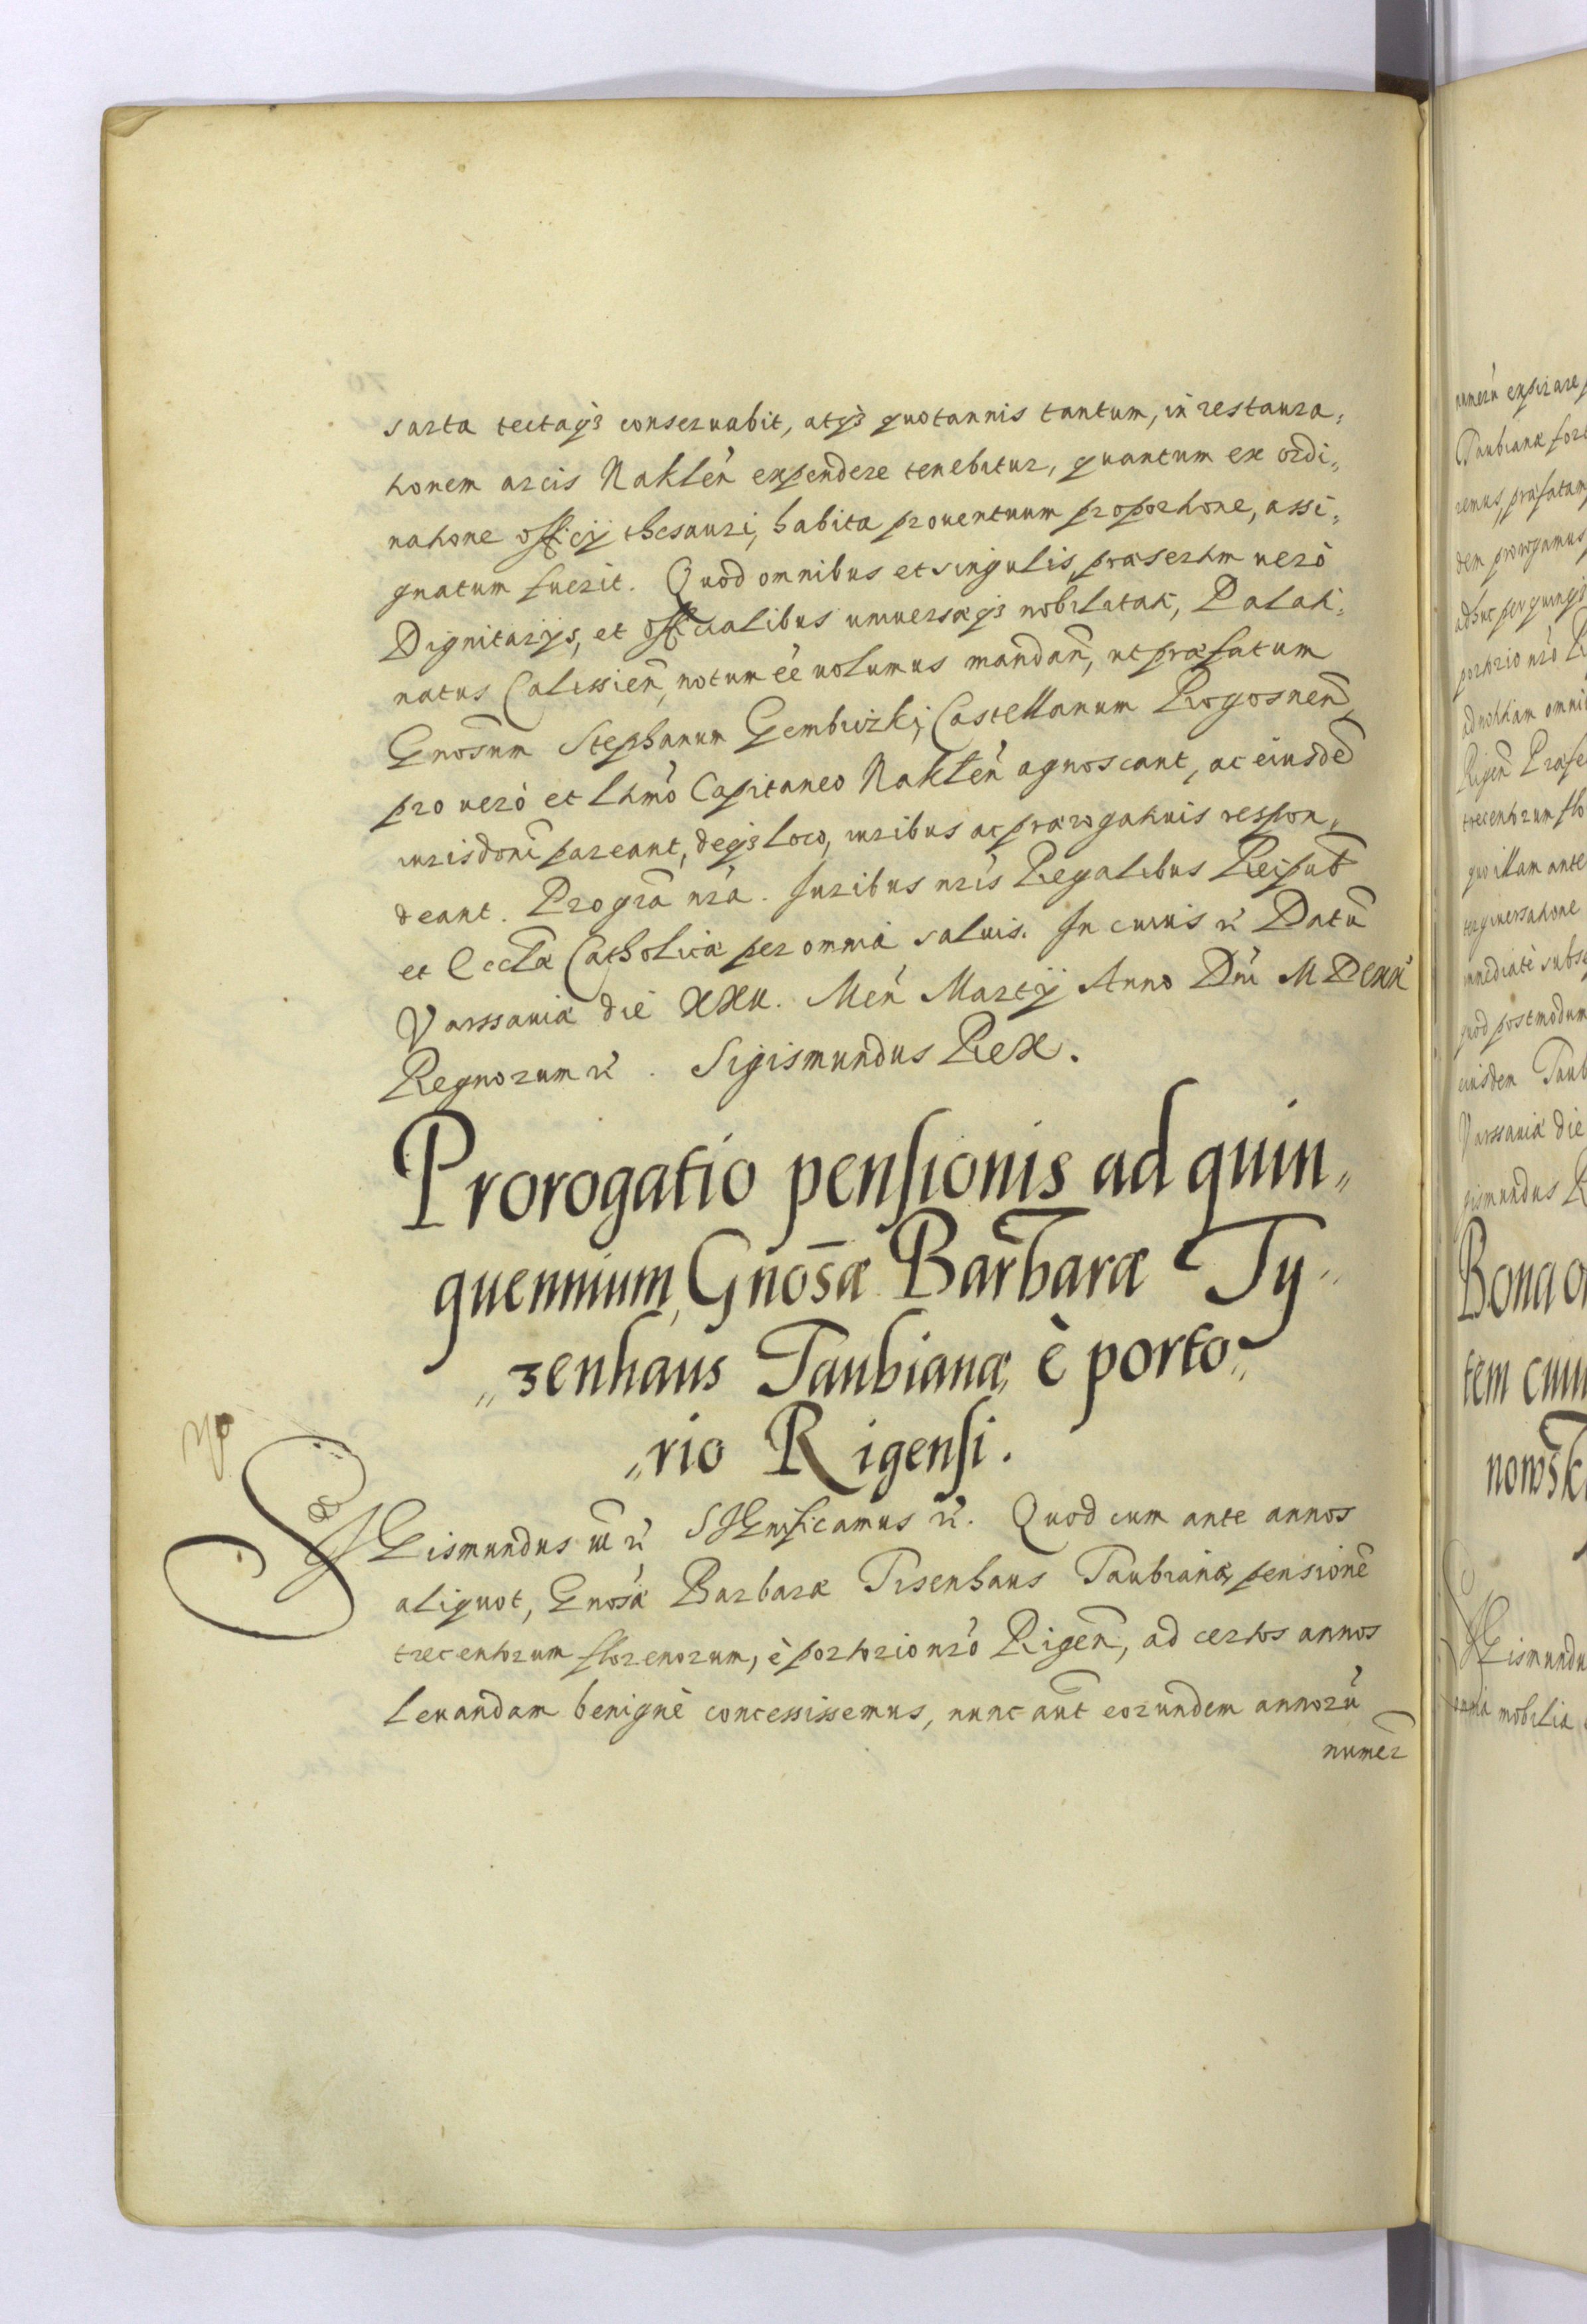 sarta tectaq3 conseruabit, atq3 quotannis tantum, in restaura,
tionem arcis Naklen̄ expendere tenebitur, quantum ex ordi,,
natione officij thesauri, habita prouentuum proportione, assi,
gnatum fuerit. Quod omnibus et singulis, præsertim uerò
Dignitarijs, et officialibus uniuersæq3 nobilitati, Palati,
natus Calissien̄, notum eē uolumus mandan̄, ut præfatum
Gnosum̄ Stephanum Gembiczki, Castellanum Rogosnen̄
pro uerò et ltimō Capitaneo Naklen̄ agnoscant, ac eiusdē
iurisdoni pareant, deq3 loco, iuribus ac prærogatiuis respon,,
deant. Pro gra̅ nra̅. Iuribus nris̅ Regalibus Reipub̅
et Eccl̅æ Catholicæ per omnia saluis. In cuius rc̅ Datu̅
Varssauiæ die XXII. Men̄ Martij Anno Dni̅ MDCXX
Regnorum rc̅. Sigismundus Rex.
Prorogatio pensionis ad quin,,
quennium, Gnosǣ Barbaræ Ty,,
,,zenhaus Taubianæ, è porto,,
,,rio Rigensi.
SIGismundus III rc̅ SIGnificamus rc̅. Quod cum ante annos
aliquot, Gnosǣ Barbaræ Tisenhaus Taubianæ, pensione̅
trecentorum florenorum, è portorio nro̅ Rigen̄, ad certos annos
leuandam benignè concessissemus, nunc aut̅ eorundem annoru̅
numer
numeru̅ expirare
Taubianæ
remus, præfatam
dem prorogamus
adhuc per quinq3
portorio nro̅
ad notitiam omni
Rigen̄ Præfe
trecentorum flo
quo illam ante
tergiuersatione
immediatè subse
quod postmodum
eiusdem Taub
Varssauiæ die
gismundus R
Bona
tem
nowsk
SIGismundu
mobilia